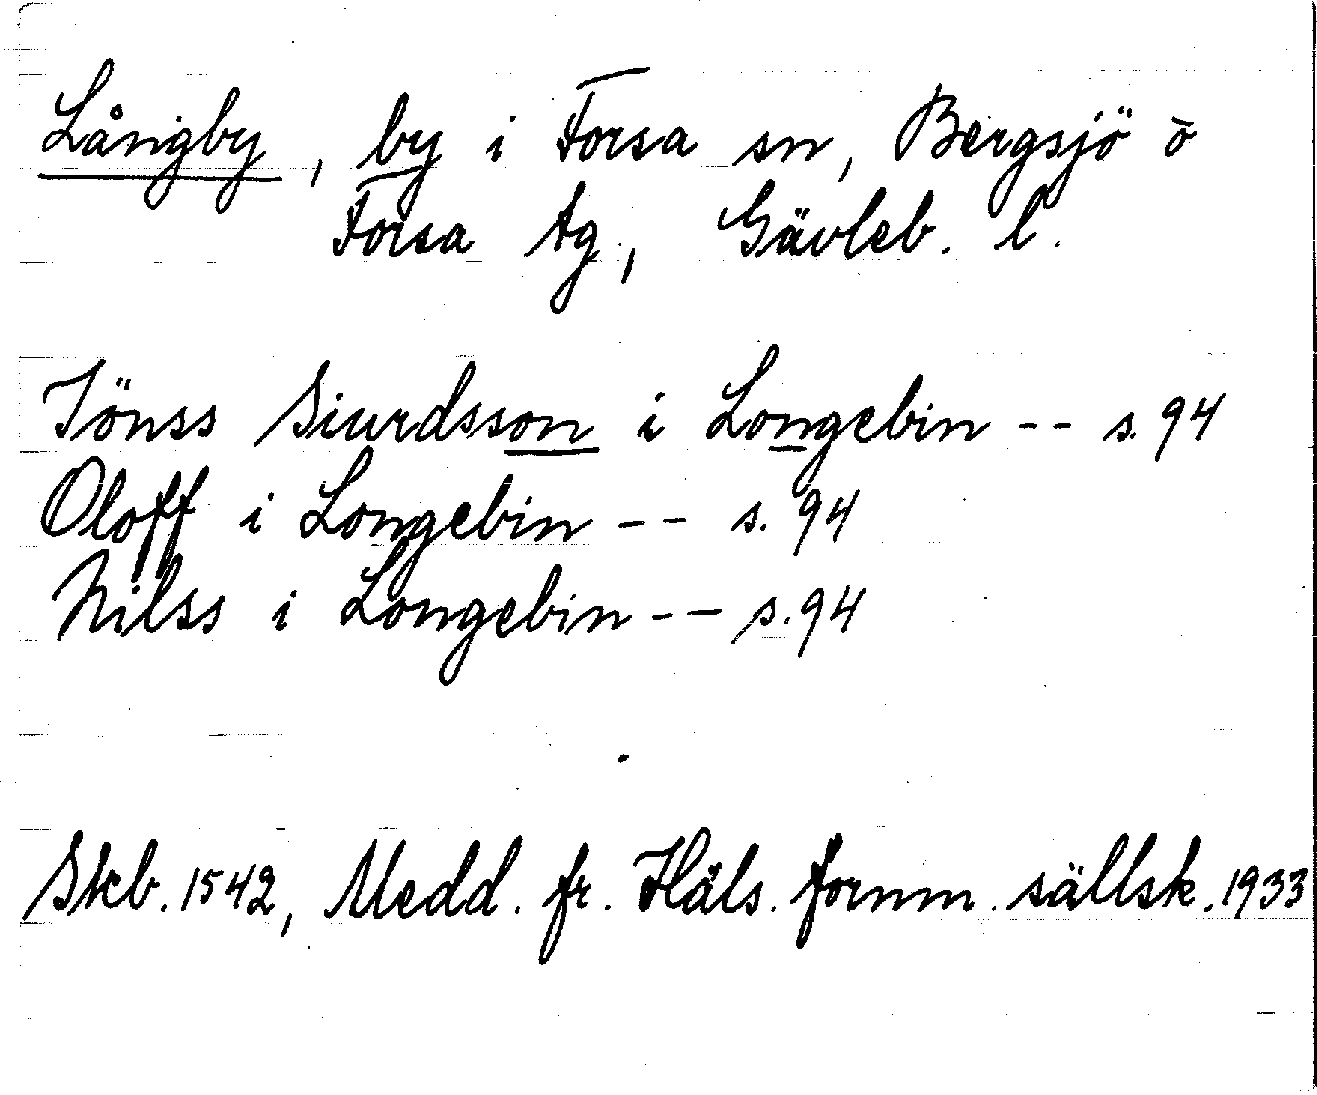 Långby, by i Forsa sn, Bergsjö o
Forsa tg, Gävleb. l.
Jönss Siurdsson i Longebin -- s. 94
Oloff i Longebin -- s. 94
Nilss i Longebin -- s. 94
Skb. 1542, Medd. fr. Häls. fornm. sällsk. 1933